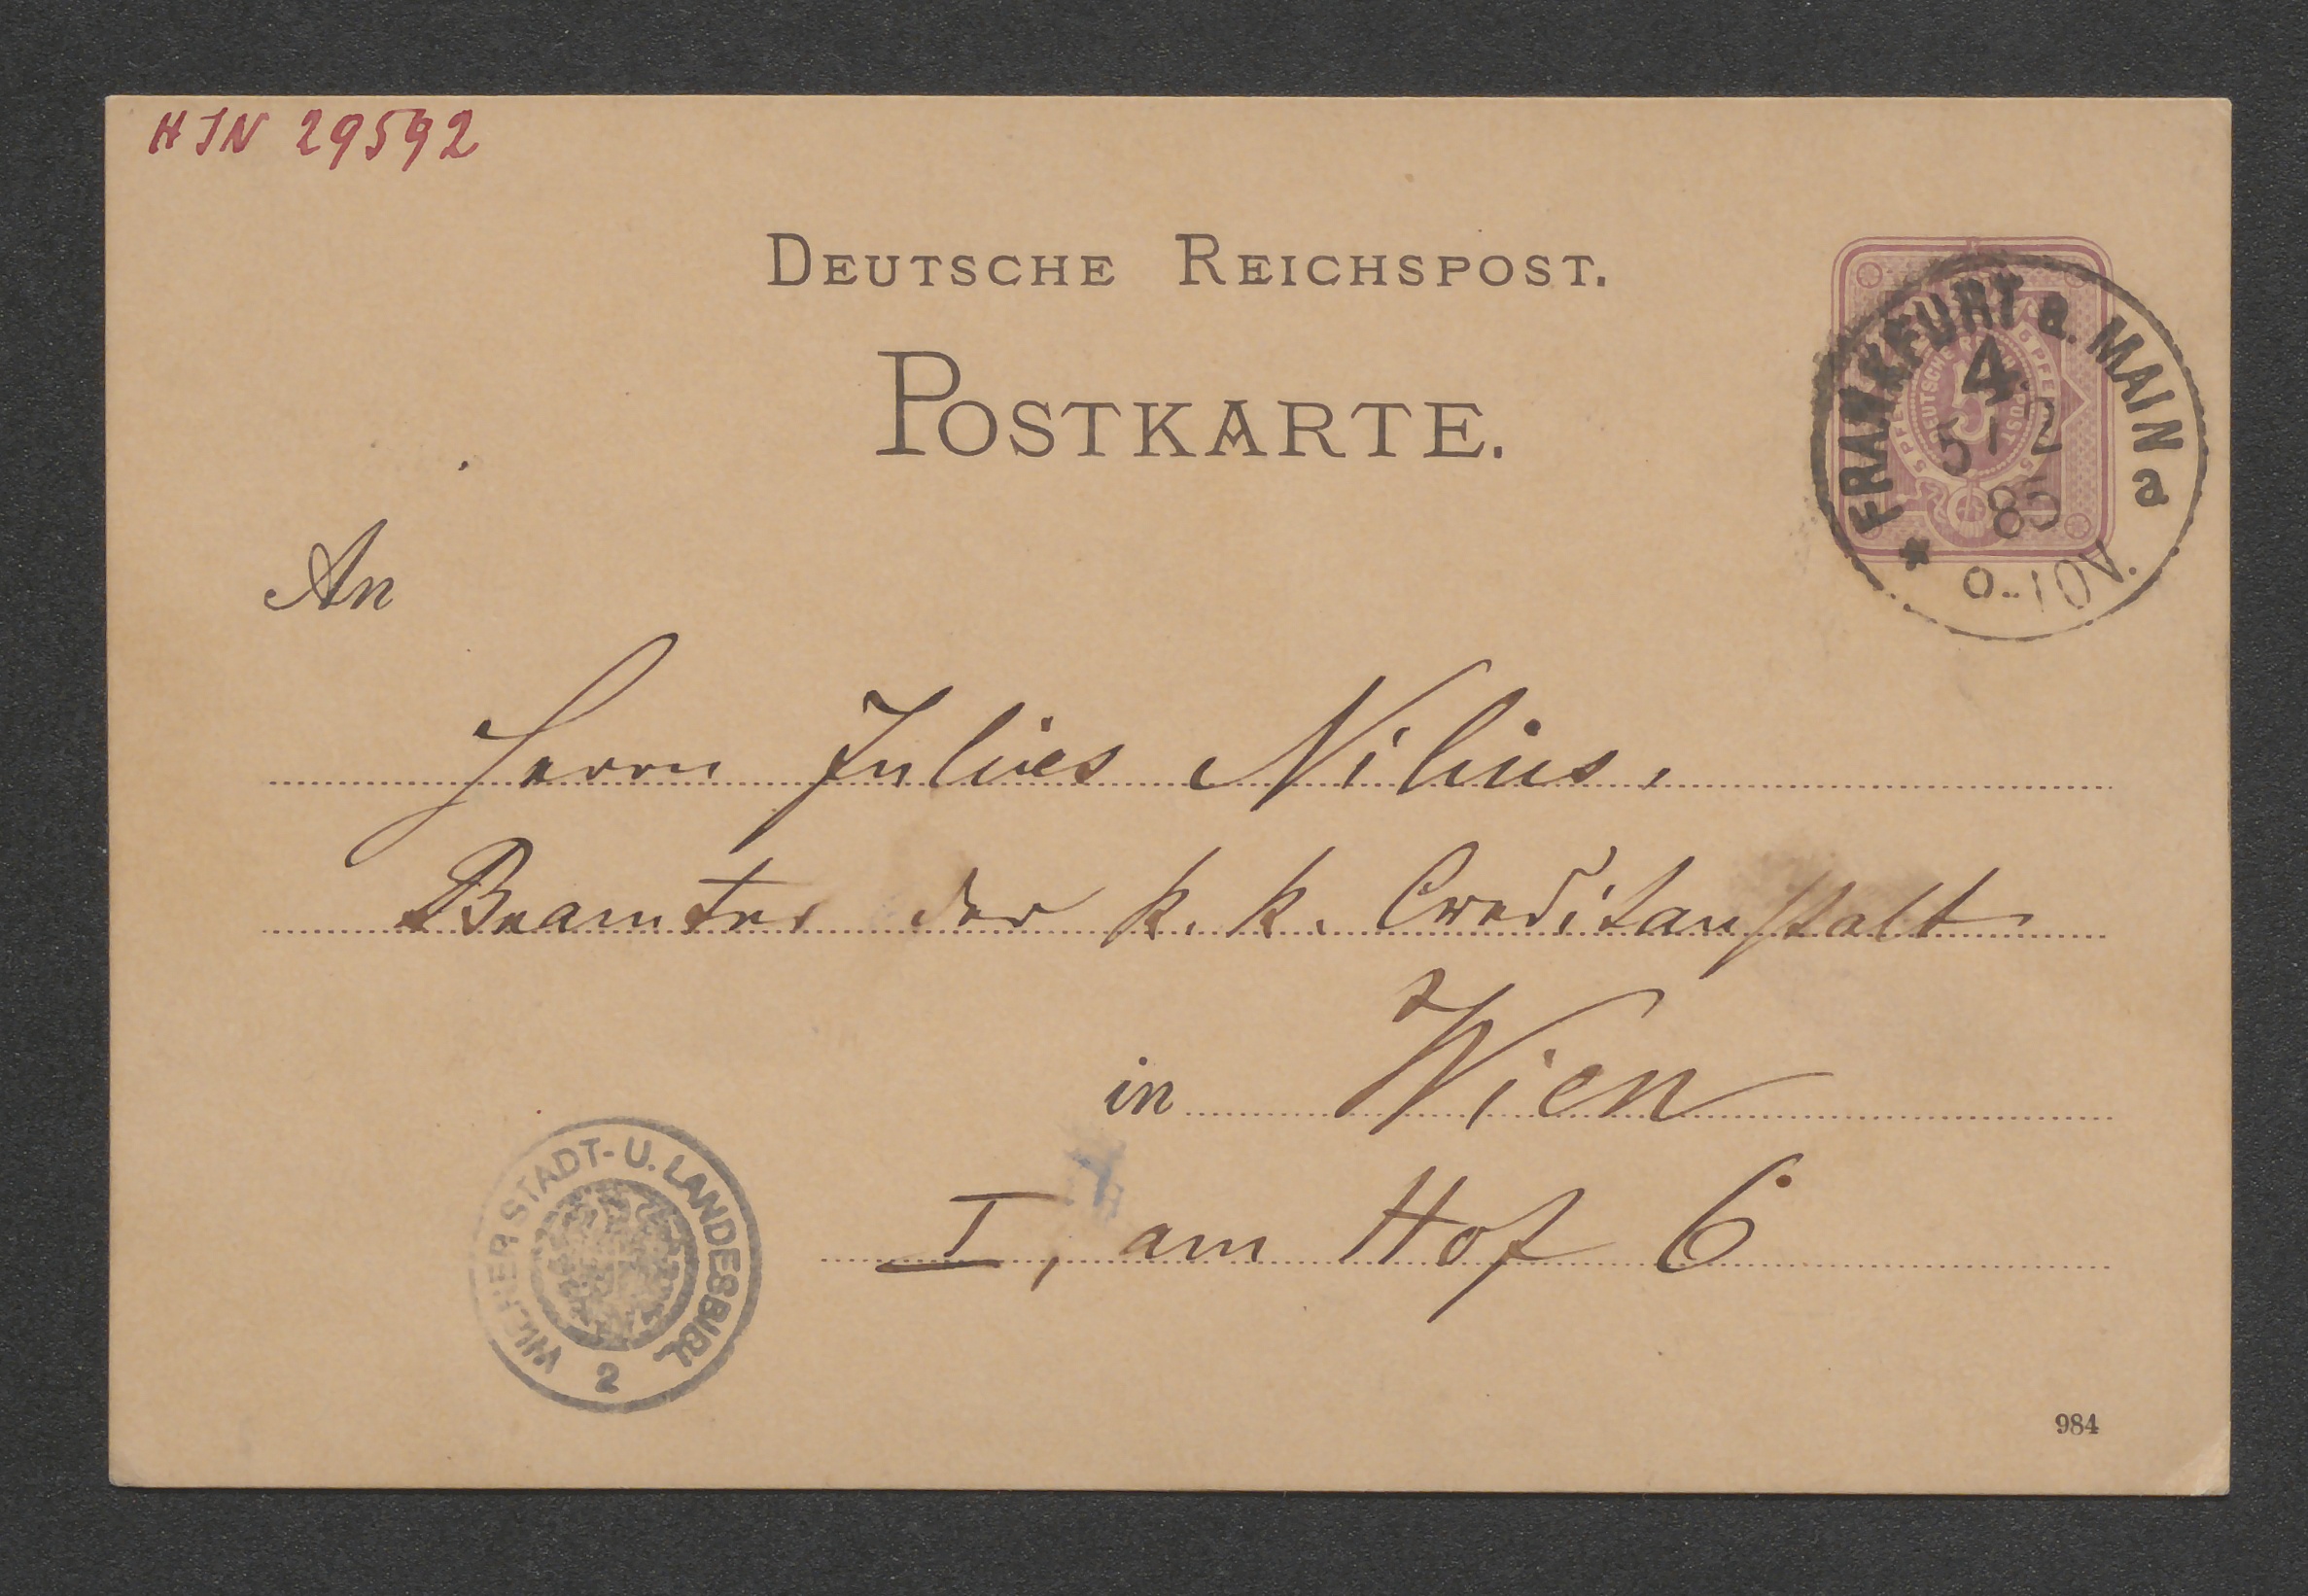 HIN 29592
DEUTSCHE REICHSPOST.
POSTKARTE.
FRANKFURT a. MAIN a
4
5 - 2
85
9-10V.
An
Herrn Julius Nilius,
Beamter der k. k. Creditanstalt
in Wien
I, am Hof 6
WIENER STADT- U. LANDESBIBL.
2
984